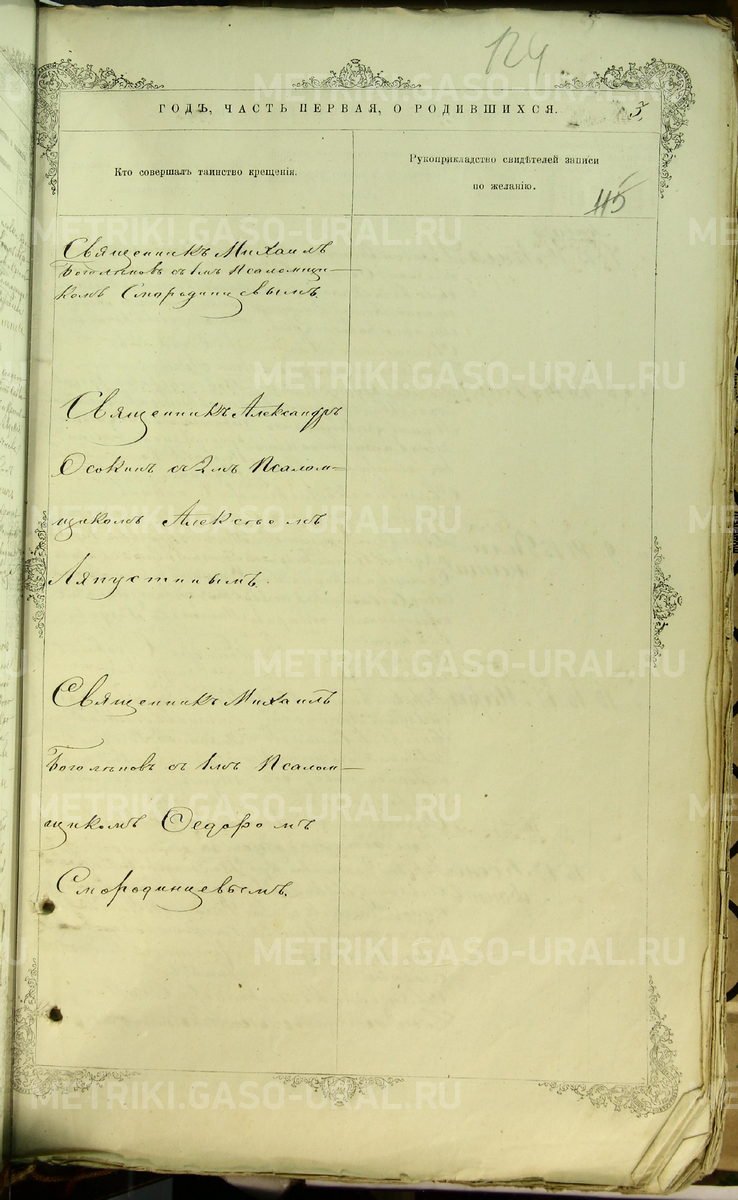 124
ГОДЪ, ЧАСТЬ ПЕРВАЯ, О РОДИВШИХСЯ.
Кто совершалъ таинство крещенія.
Рукоприкладство свидѣтелей записи
по желанію.
115
Священникъ Михаилъ
съ 1мъ Псаломщи-
комъ Смородинцевымъ.
Священникъ Александръ
Осокинъ съ 2мъ Псалом-
щикомъ Алексѣемъ
Ляпустинымъ.
Священникъ Михаилъ
съ 1мъ Псалом-
щикомъ Ѳедоромъ
Смородинцевымъ.
METRIKI.GASO-URAL.RU